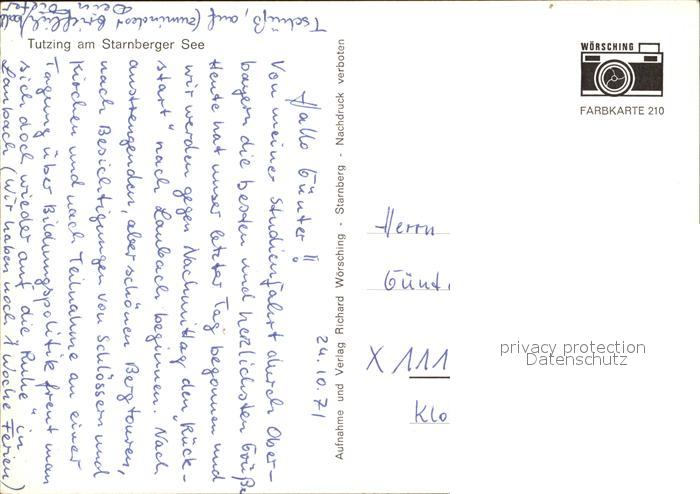 Tutzing am Starnberger See
WÖRSCHING
FARBKARTE 210
Aufnahme und Verlag Richard Wörsching - Starnberg - Nachdruck verboten
24.10.71
Hallo Günter!!
Von meiner Studienfahrt durch Ober-
bayern die besten und herzlichsten Grüße
Heute hat unser letzter Tag begonnen und
wir werden gegen Nachmittag den "Rück-
start" nach Laubach beginnen. Nach
anstrengenden, aber schönen Bergtouren,
nach Besichtigungen von Schlössern und
Kirchen und nach Teilnahme an einer
Tagung über Bildungspolitik freut man
sich doch wieder auf die "Ruhe" in
Laubach (Wir haben noch 1 Woche Ferien)
Tschüß, auf (zumindest brieflich) bald
Dein Dieter
Herrn
Günt
X 111
Klo
privacy protection
Datenschutz